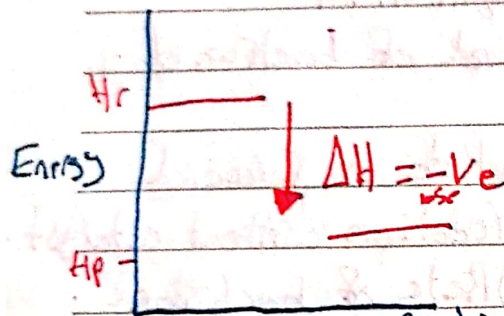 Hr
Energy
ΔH = -Ve
Hp